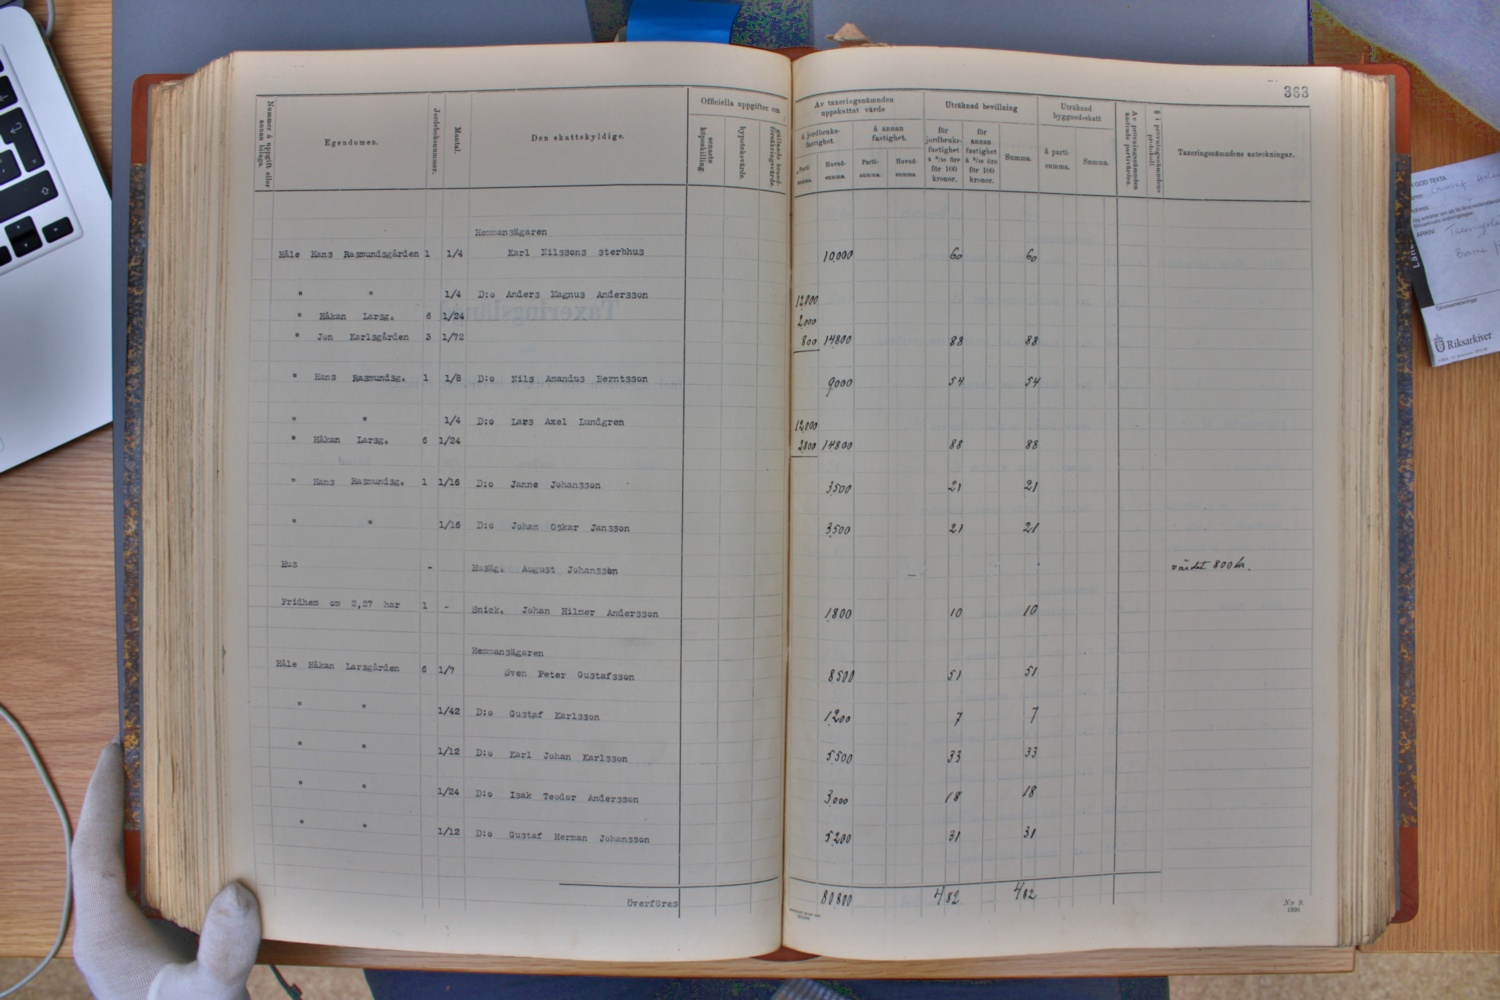 363
Nummer å uppgift eller annan bilaga.
Egendomen.
Jordeboksnummer.
Mantal.
Den skattskyldige.
Officiella uppgifter om
senaste köpeskilling.
hypoteksvärde.
gällande brandförsäkringsvärde.
Av taxeringsnämnden uppskattat värde
å jordbruksfastighet.
å annan fastighet.
Partisumma.
Huvudsumma.
Partisumma.
Huvudsumma
Uträknad bevillning
för jordbruksfastighet
för 100 kronor.
för annan fastighet
för 100 kronor.
Summa.
Uträknad
å partisumma.
Summa.
Taxeringsnämndens anteckningar.
Hemmansägaren
Håle Hans Rasmundsgården 1 1/4 Karl Nilssons sterbhus 10,000 60 60
" " 1/4 D:o Anders Magnus Andersson 12,000
" Håkan Larsg. 6 1/24 2,000
" Jon Karlsgården 3 1/72 800 14,800 88 88
" Hans Rasmundsg. 1 1/8 D:o Nils Amandus Berntsson 9,000 54 54
" " 1/4 D:o Lars Axel Lundgren 12,000
" Håkan Larsg. 6 1/24 2800 14800 88 88
" Hans Rasmundsg. 1 1/16 D:o Janne Johansson 3,500 21 21
" " 1/16 D:o Johan Oskar Jansson 3,500 21 21
Hus - Husäg. August Johansson - värdet 800 kr.
Fridhem om 2,27 har 1 - Snick. Johan Hilmer Andersson 1,800 10 10
Hemmansägaren
Håle Håkan Larsgården 6 1/7 Sven Peter Gustafsson 8,500 51 51
" " 1/42 D:o Gustaf Karlsson 1,200 7 7
" " 1/12 D:o Karl Johan Karlsson 5,500 33 33
" " 1/24 D:o Isak Teodor Andersson 3,000 18 18
" " 1/12 D:o Gustaf Herman Johansson 5,200 31 31
Överföres 80 800 482 482
Nr 9.
GOD TEXTA
ARKIV:
Riksarkivet